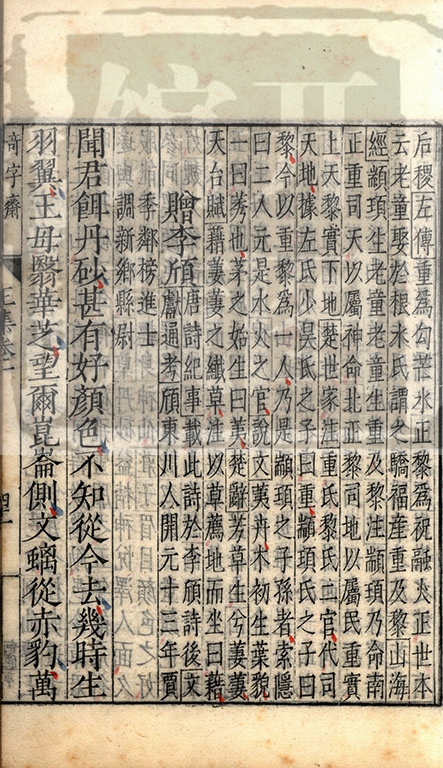 后稷左傳重爲勾芒木正黎爲祝融火正世本
云老童娶於根水氏謂之驕福産重及黎山海
經顓頊生老童老童生重及黎注顓頊乃命南
正重司天以屬神命北正黎司地以屬民重實
上天黎實下地楚世家注重氏黎氏二官代司
天地據左氏少昊氏之子曰重顓頊氏之子曰
黎今以重黎爲一人乃是顓頊之子孫者索隱
曰二人元是木火之官說文荑卉木初生葉貌
一曰莠也茅之始生曰荑楚辭芳草生兮萋萋
天台賦藉萋萋之纖草注以草薦地而坐曰藉
贈李頎
唐詩紀事載此詩於李頎詩後文
獻通考頎東川人開元十三年賈
季鄰榜進士
調新鄉縣尉
聞君餌丹砂甚有好顏色不知從今去幾時生
羽翼王母翳華芝望爾崑崙側文螭從赤豹萬
奇字齋